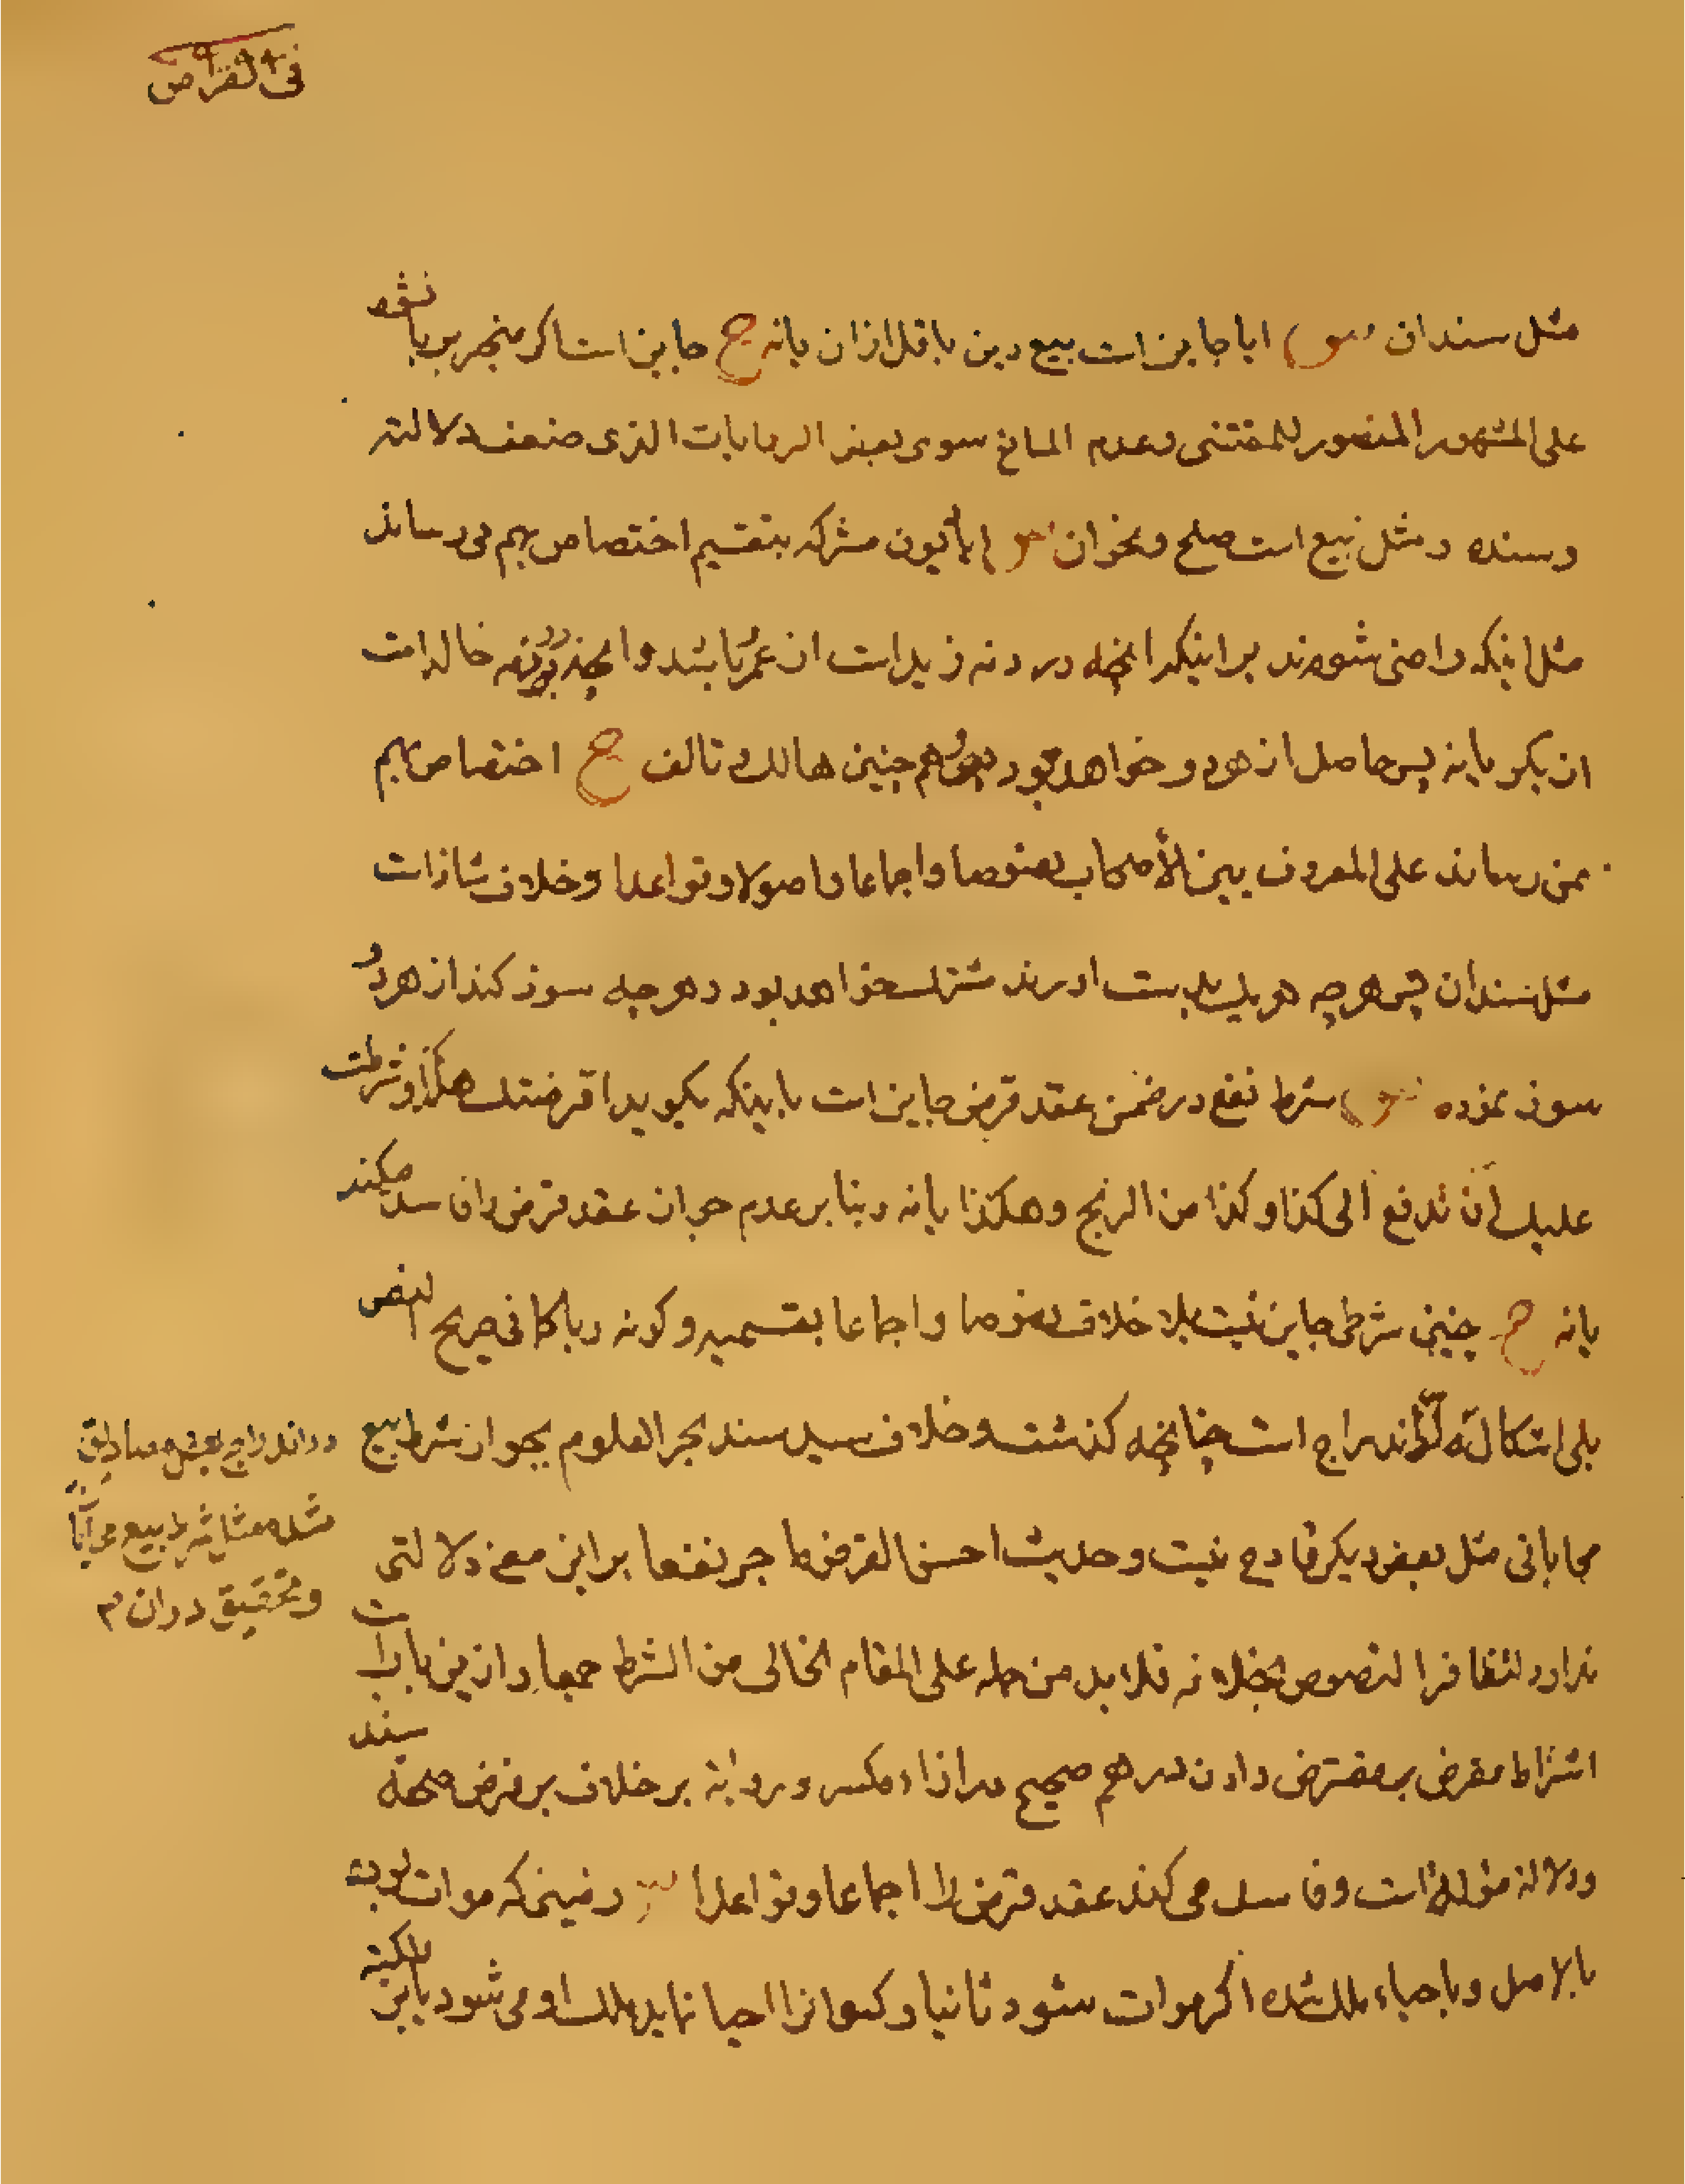 فی القراض
مثل سندان س ایا جایز است بیع دین باقل ازان یا نه ج جایز است اکر منجر بربا نشود
علی المشهور المنصور للمقتضی وعدم المانع سوی بعض الروایات الذی ضعف دلالته
وسنده ومثل بیع است صلح ونحوان س ایا دیون مشترکه بتقسیم اختصاص بهم می رساند
مثل اینکه راضی شوند بر اینکه انچه در ذمه زید است از عمرو باشد وانچه در ذمه خالد است
از بکر یا نه پس حاصل از هردو خواهد بود وهم چنین هالک وتالف ج اختصاص بهم
نمی رساند علی المعروف بین الأصحاب نصوصا واجماعا واصولا وقواعدا وخلاف شاذ است
مثل سندان پس هرچه هر یک بدست اورند مشترک خواهد بود وهرچه سوخت کند از هردو
سوخت نموده س شرط نفع در ضمن عقد قرض جایز است باینکه بکوید اقرضتک هکذا وشرطت
علیک أن تدفع الی کذا وکذا من الربح وهکذا یا نه وبنا بر عدم جواز عقد قرض را فاسد میکند
یا نه ج چنین شرطی جایز نیست بلا خلاف نصوصا واجماعا بقسمیه وکونه ربا کما فی صریح النص
بلی اشکال در اندراج است چنانچه کذشت وخلاف سید سند بحر العلوم بجواز شرط بیع
محاباتی مثل بعض دیکر قادح نیست وحدیث احسن القرض ما جر نفعا بر این معنی دلالتی
ندارد لتظافر النصوص بخلافه فلا بد من حمله علی المقام الخالی من الشرط جمعا وازین باب است
اشتراط مقرض بر مقترض دادن درهم صحیح در ازاء مکسر وروایة بر خلاف بر فرض صحة سند
ودلالة مؤله است وفاسد می کند عقد قرض را اجماعا وقواعدا س زمینی که موات بوده
بالاصل وباحیاء ملک شده اکر موات شود ثانیا وکسی انرا احیا نماید ملک او می شود یا بر ملکیة
در اندراج بعض مصادیق
شده مثل شرط بیع محاباتی
وتحقیق دران م